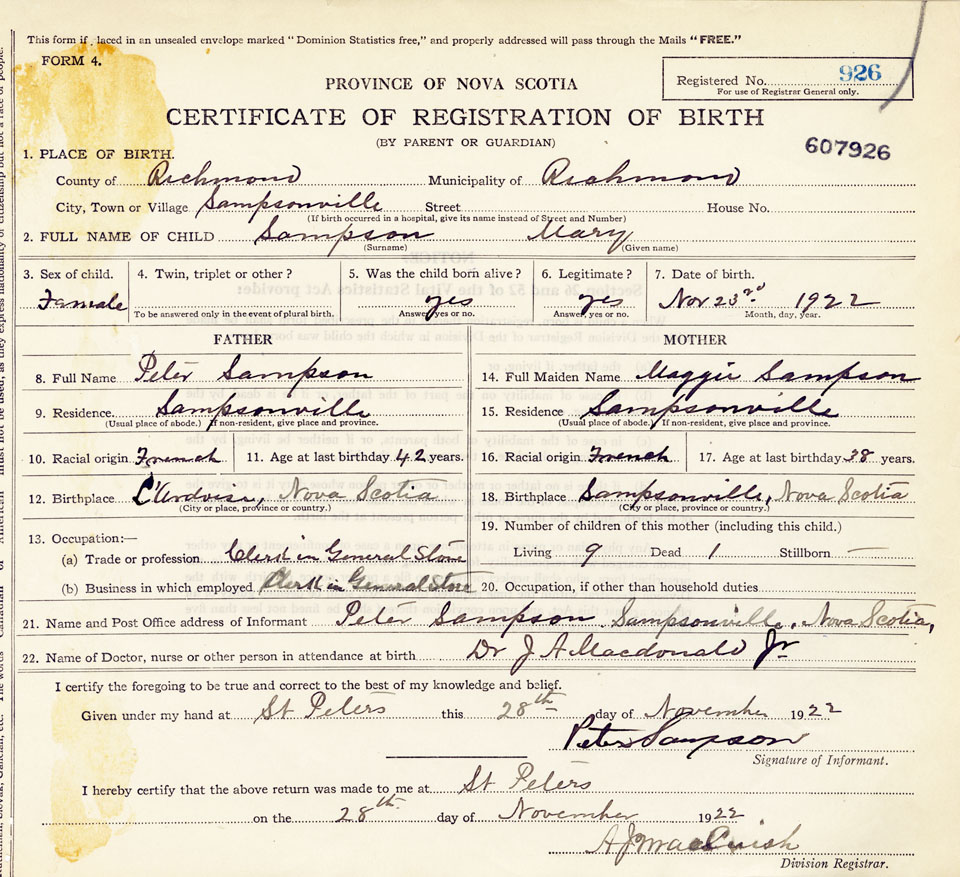 This form if laced in an unsealed envelope marked "Dominion Statistics free," and properly addressed will pass through the Mails "FREE."
FORM 4.
Registered No. 926
For use of Registrar General only.
PROVINCE OF NOVA SCOTIA
CERTIFICATE OF REGISTRATION OF BIRTH
(BY PARENT OR GUARDIAN)
607926
1. PLACE OF BIRTH.
County of Richmond Municipality of Richmond
City, Town or Village Sampsonville Street House No.
(If birth occurred in a hospital, give its name instead of Street and Number)
2. FULL NAME OF CHILD Sampson Mary
(Surname) (Given name)
3. Sex of child. 4. Twin, triplet or other? 5. Was the child born alive? 6. Legitimate? 7. Date of birth.
Famale yes yes Nov 23rd 1922
To be answered only in the event of plural birth. Answer, yes or no. Answer, yes or no. Month, day, year.
FATHER MOTHER
8. Full Name Peter Sampson 14. Full Maiden Name Maggie Sampson
9. Residence. Sampsonville 15. Residence Sampsonville
(Usual place of abode.) If non-resident, give place and province. (Usual place of abode.) If non-resident, give place and province.
10. Racial origin French 11. Age at last birthday 42 years. 16. Racial origin French 17. Age at last birthday 38 years.
12. Birthplace L'Ardoise, Nova Scotia 18. Birthplace Sampsonville, Nova Scotia
(City or place, province or country.) (City or place, province or country.)
19. Number of children of this mother (including this child.)
13. Occupation:—
(a) Trade or profession Clerk in General Store Living 9 Dead 1 Stillborn —
(b) Business in which employed Clerk in General Store 20. Occupation, if other than household duties
21. Name and Post Office address of Informant Peter Sampson, Sampsonville, Nova Scotia,
22. Name of Doctor, nurse or other person in attendance at birth Dr J A Macdonald Jr
I certify the foregoing to be true and correct to the best of my knowledge and belief.
Given under my hand at St Peters this 28th day of November 1922
Peter Sampson
Signature of Informant.
I hereby certify that the above return was made to me at St Peters
on the 28th day of November 1922
A J MacCuish
Division Registrar.